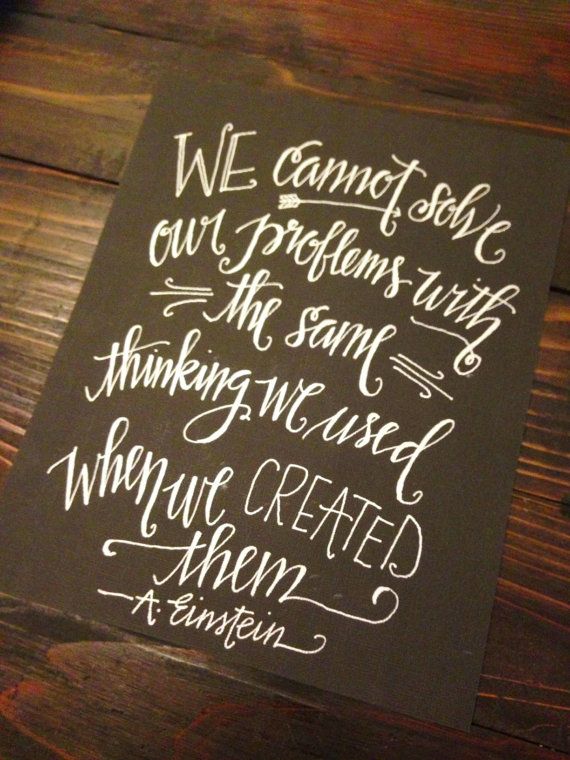 WE cannot solve
our problems with
the same
thinking we used
when we CREATED
them
—A. Einstein